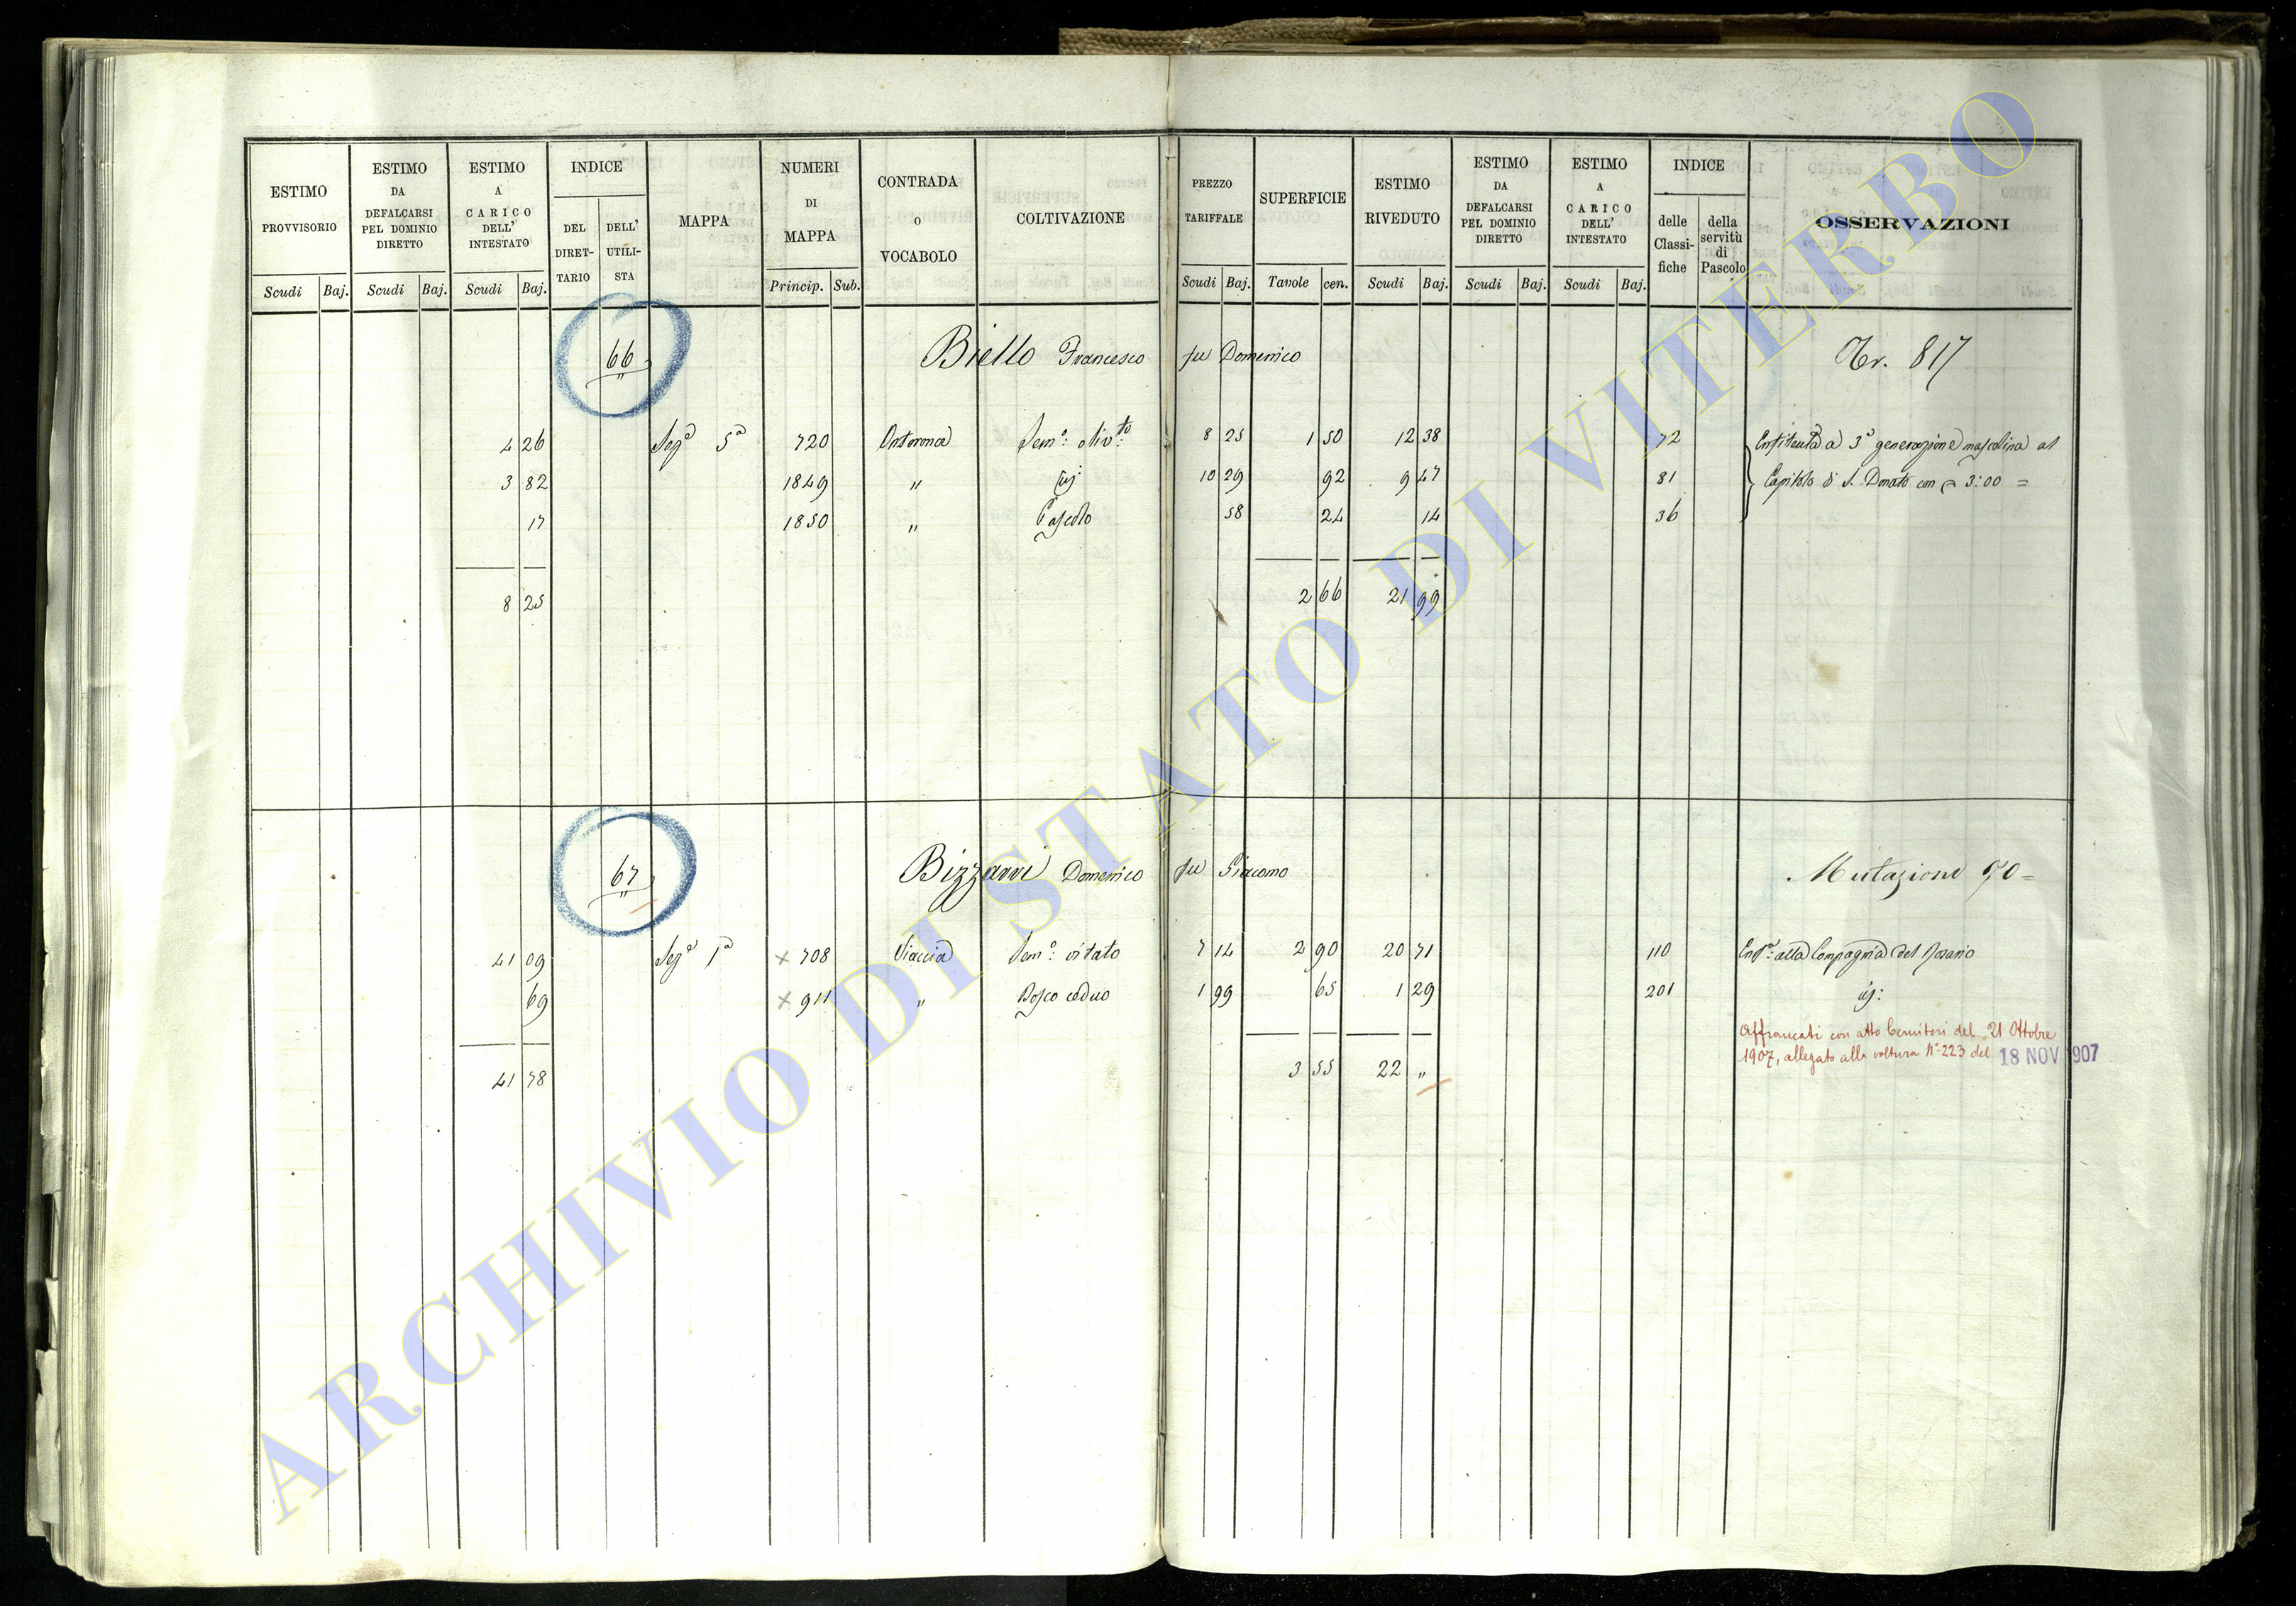 ESTIMO PROVVISORIO Scudi Baj.
ESTIMO DA DEFALCARSI PEL DOMINIO DIRETTO Scudi Baj.
ESTIMO A CARICO DELL' INTESTATO Scudi Baj.
INDICE DEL DIRET- TARIO DELL' UTILI- STA
MAPPA
NUMERI DI MAPPA Princip. Sub.
CONTRADA O VOCABOLO
COLTIVAZIONE
PREZZO TARIFFALE Scudi Baj.
SUPERFICIE Tavole cen.
ESTIMO RIVEDUTO Scudi Baj.
ESTIMO DA DEFALCARSI PEL DOMINIO DIRETTO Scudi Baj.
ESTIMO A CARICO DELL' INTESTATO Scudi Baj.
INDICE delle Classi- fiche della servitù di Pascolo
OSSERVAZIONI
66 Biello Francesco fu Domenico 817
4 26 Sezª 5ª 720 Semº: olivto: 8 25 1 50 12 38 72 Enfiteuta a 3ª generazione mascolina al
3 82 1849 " id: 10 29 92 9 47 81 Capitolo di S. Donato con 3:00 =
17 1850 " Pascolo 58 24 14 36
8 25 2 66 21 99
67 Bizzarri Domenico fu Giacomo Mutazione 90 =
41 09 Sezª 1ª × 708 Viaccia Semº: vitato 7 14 2 90 20 71 110 Enfª: alla Compagnia del Rosario
69 × 911 " Bosco ceduo 1 99 65 1 29 201 id:
Affrancati con atto Cernitori del 21 Ottobre
1907, allegato alla voltura Nº 223 del 18 NOV 1907
41 78 3 55 22 "
ARCHIVIO DI STATO DI VITERBO